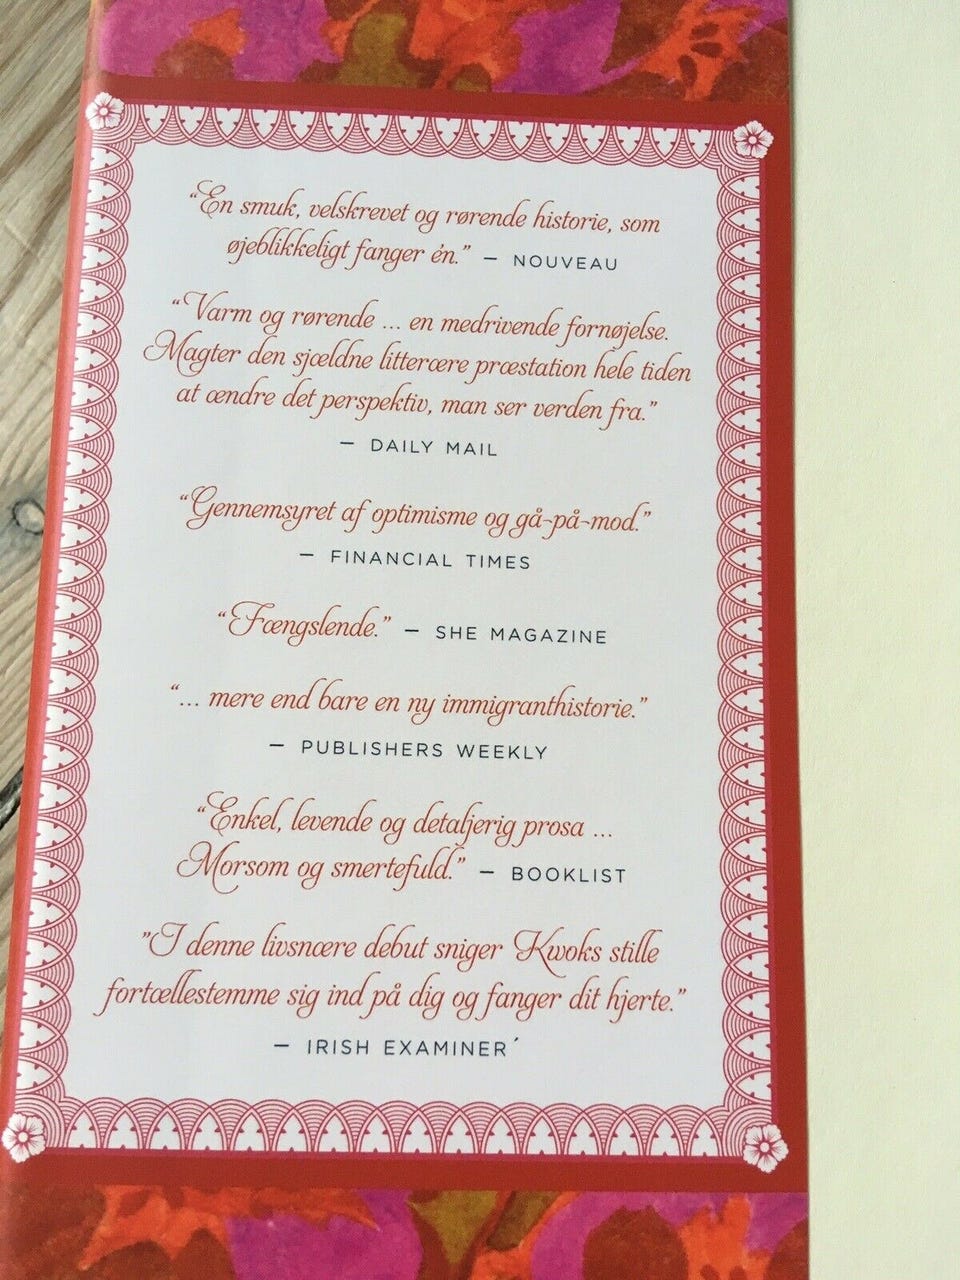 “En smuk, velskrevet og rørende historie, som
øjeblikkeligt fanger én.” – NOUVEAU
“Varm og rørende ... en medrivende fornøjelse.
Magter den sjældne litterære præstation hele tiden
at ændre det perspektiv, man ser verden fra.”
– DAILY MAIL
“Gennemsyret af optimisme og gå-på-mod.”
– FINANCIAL TIMES
“Fængslende.” – SHE MAGAZINE
“... mere end bare en ny immigranthistorie.”
– PUBLISHERS WEEKLY
“Enkel, levende og detaljerig prosa ...
Morsom og smertefuld.” – BOOKLIST
”I denne livsnære debut sniger Kwoks stille
fortællestemme sig ind på dig og fanger dit hjerte.”
– IRISH EXAMINER´